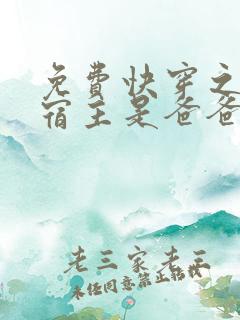 免費快穿之
宿主是爸爸
老三家老三
未经同意禁止转载